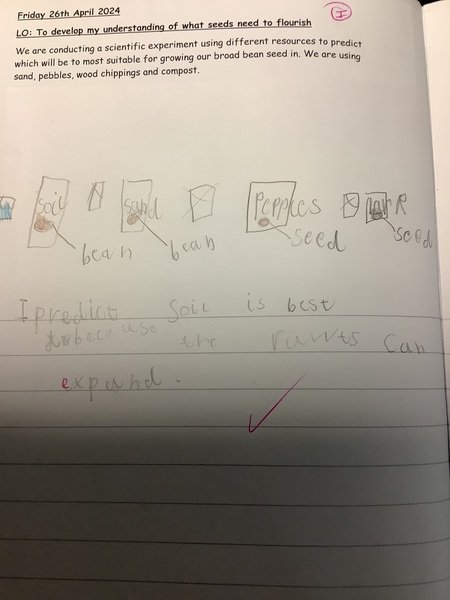 Friday 26th April 2024
I
LO: To develop my understanding of what seeds need to flourish
We are conducting a scientific experiment using different resources to predict
which will be to most suitable for growing our broad bean seed in. We are using
sand, pebbles, wood chippings and compost.
Soil sand Pepples
bean bean seed seed
I predict Soil is best
because the ruwts can
expand.